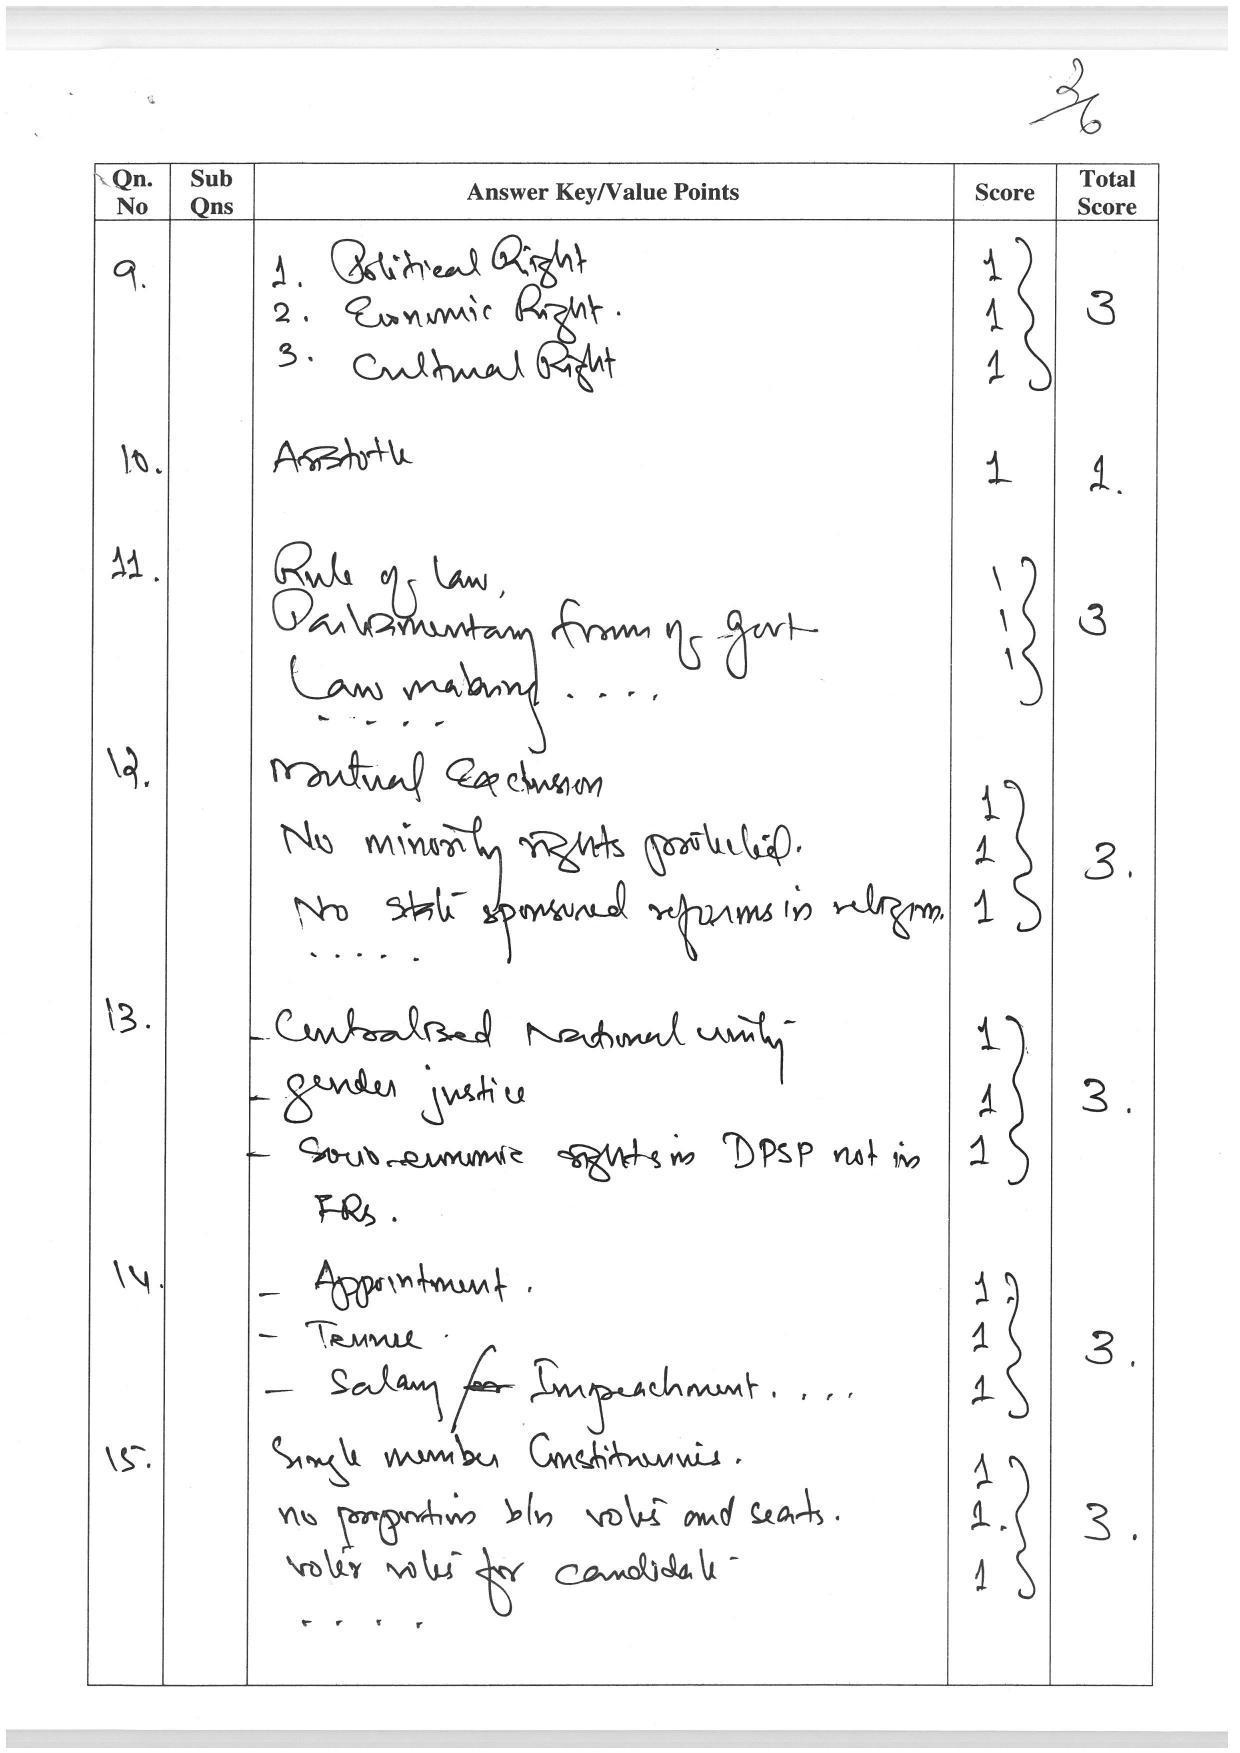 2/6
Qn. No | Sub Qns | Answer Key/Value Points | Score | Total Score
9. 1. Political Right 1
2. Economic Right. 1 3
3. Cultural Right 1
10. Aristotle 1 1.
11. Rule of law, 1
Parliamentary from of govt 1 3
Law making . . . . 1
. . . . .
12. Mutual Exclusion 1
No minority rights protected. 1 3.
No state sponsured reforms in religion. 1
. . . . .
13. - Centralised National unity 1
- gender justice 1 3.
- Socio-economic rights in DPSP not in 1
FRs.
14. - Appointment. 1
- Tenure. 1 3.
- Salary Impeachment. . . . . 1
15. Single member Constituencies. 1
no proportion b/n votes and seats. 1. 3.
voter votes for candidate 1
. . . .